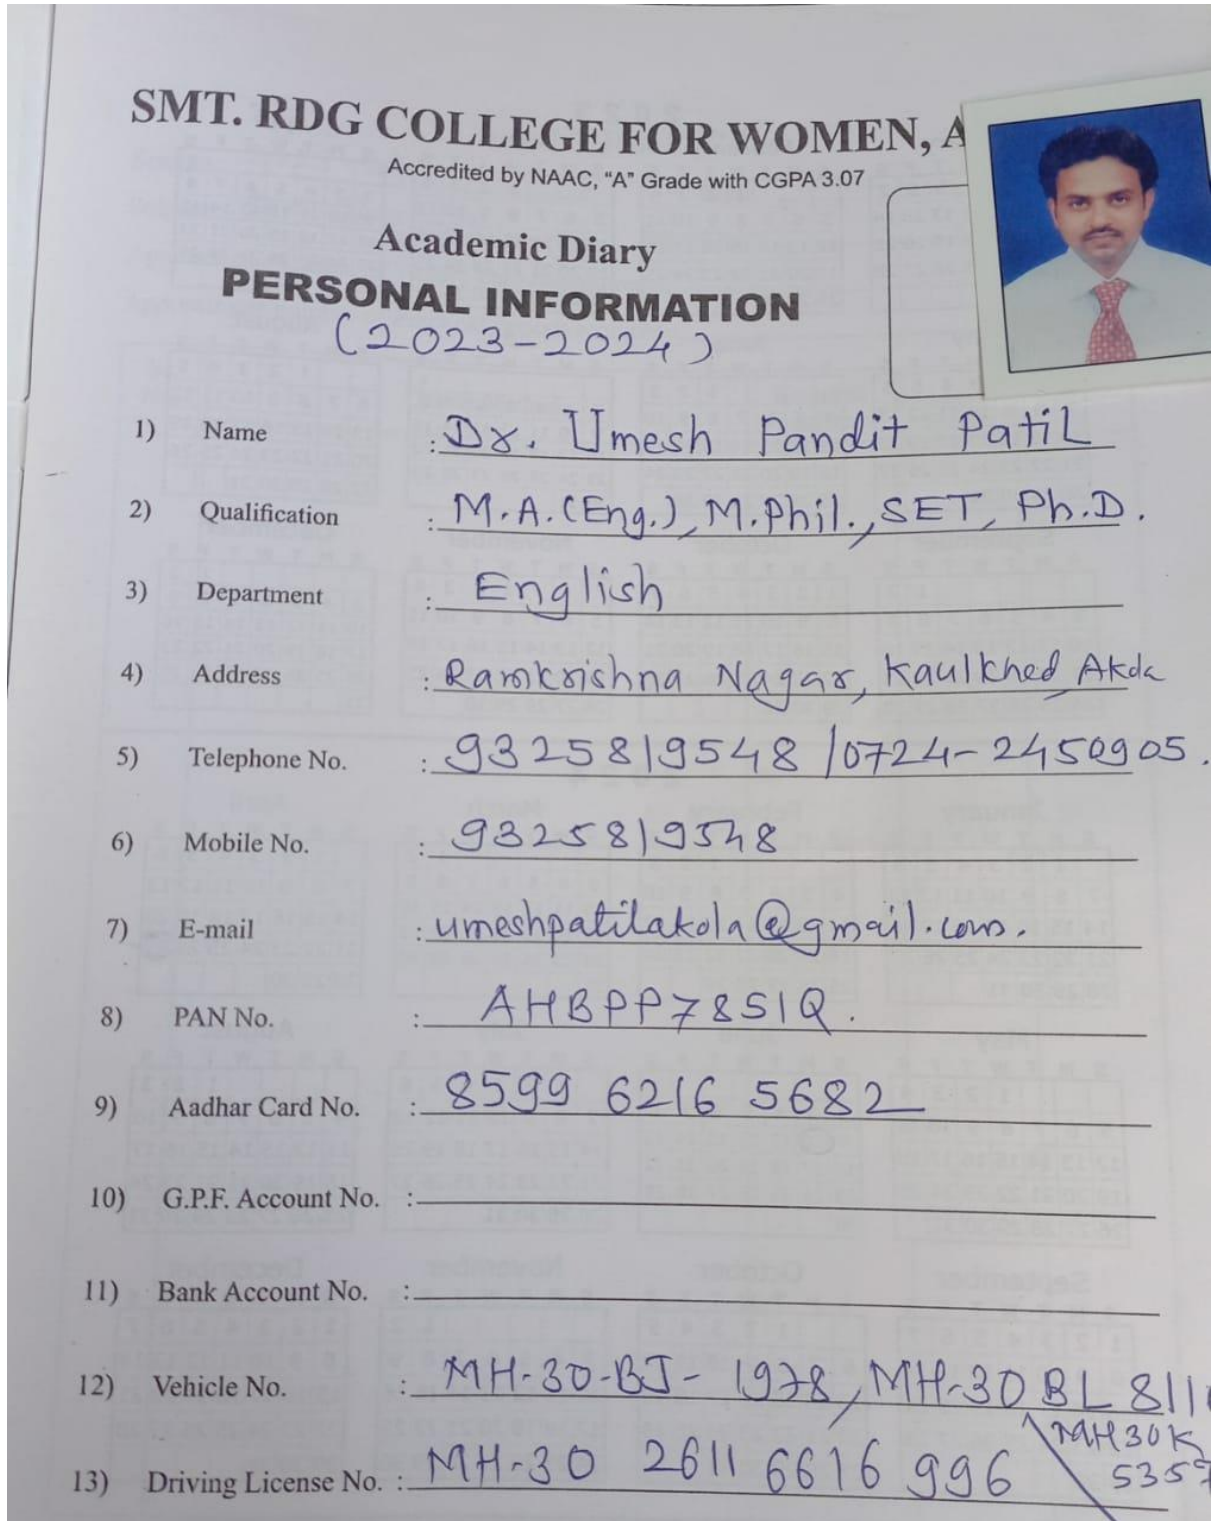 SMT. RDG COLLEGE FOR WOMEN, A
Accredited by NAAC, "A" Grade with CGPA 3.07
Academic Diary
PERSONAL INFORMATION
(2023-2024)
1) Name : Dr. Umesh Pandit Patil
2) Qualification : M.A.(Eng.), M.Phil., SET, Ph.D.
3) Department : English
4) Address : Ramkrishna Nagar, Kaulkhed Akola
5) Telephone No. : 9325819548 / 0724-2450905.
6) Mobile No. : 9325819548
7) E-mail : umeshpatilakola@gmail.com.
8) PAN No. : AHBPP7851Q.
9) Aadhar Card No. : 8599 6216 5682
10) G.P.F. Account No. :
11) Bank Account No. :
12) Vehicle No. : MH-30-BJ-1978, MH-30 BL 811
MH30K
535
13) Driving License No. : MH-30 2611 6616 996